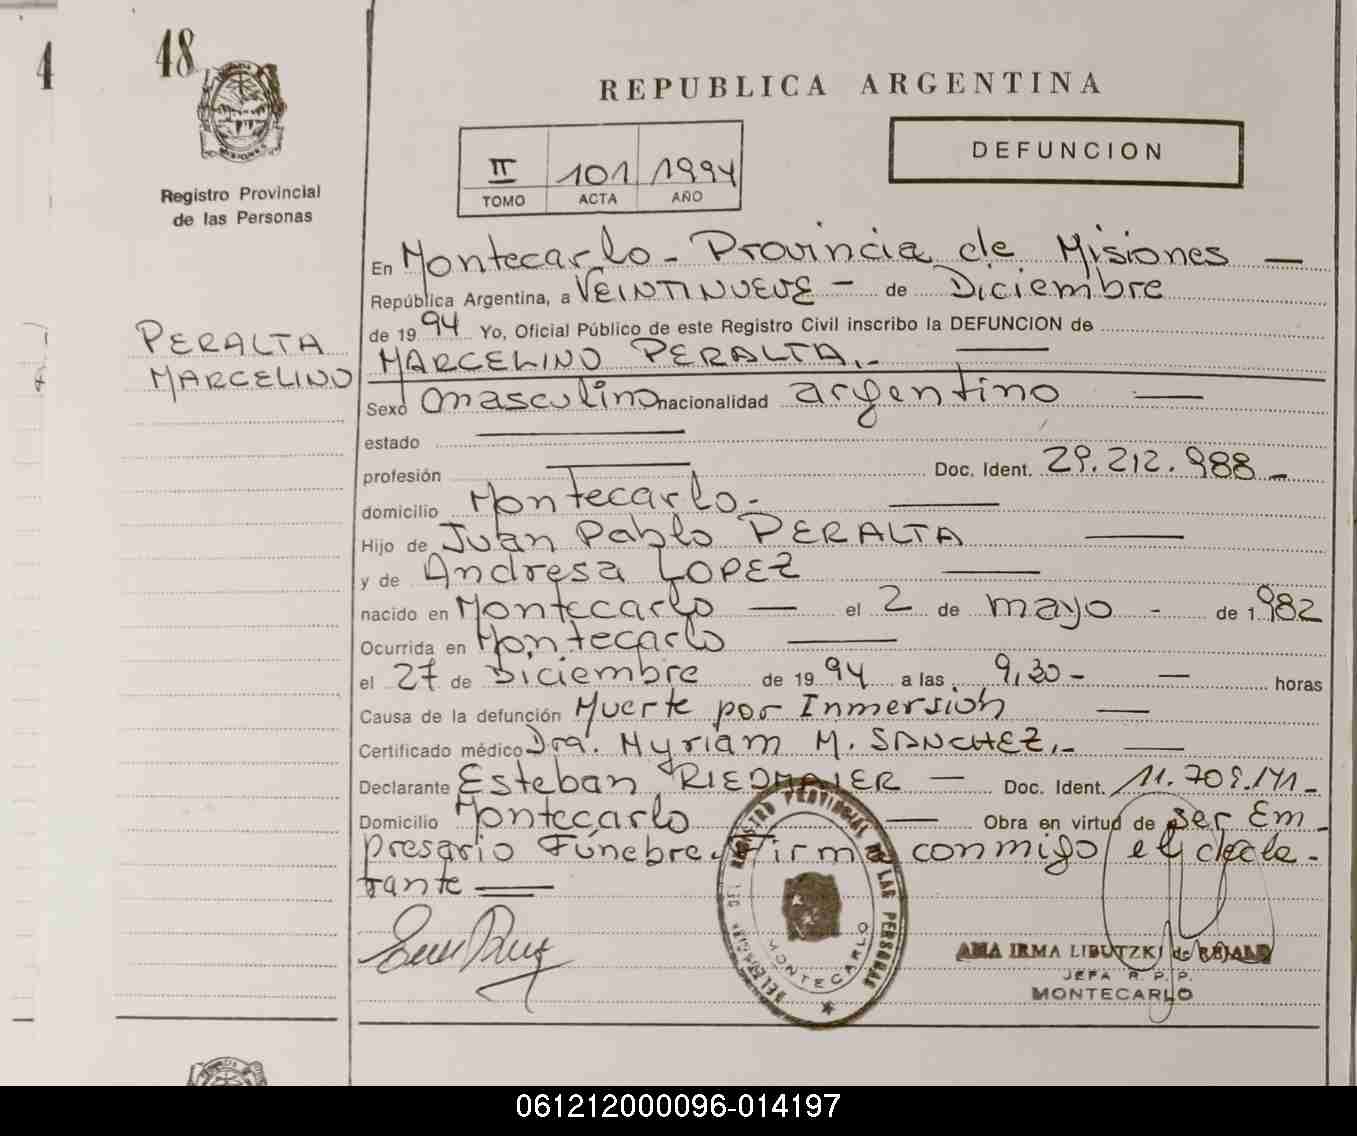 4
48
MISIONES
Registro Provincial
de las Personas
PERALTA
MARCELINO
REPUBLICA ARGENTINA
II 101 1994
TOMO ACTA AÑO
DEFUNCION
En Montecarlo - Provincia de Misiones —
República Argentina, a VEINTINUEVE - de Diciembre
de 1994 Yo, Oficial Público de este Registro Civil inscribo la DEFUNCION de
MARCELINO PERALTA.- —
Sexo masculino nacionalidad argentino —
estado —
profesión — Doc. Ident. 29.212.988 -
domicilio Montecarlo.- —
Hijo de Juan Pablo PERALTA —
y de Andresa LOPEZ —
nacido en Montecarlo — el 2 de mayo - de 1.982
Ocurrida en Montecarlo —
el 27 de Diciembre de 1994 a las 9,30 - — horas
Causa de la defunción Muerte por Inmersión —
Certificado médico Dra. Myriam M. SANCHEZ.- —
Declarante Esteban RIEDMAIER — Doc. Ident. 11.709.171 -
Domicilio Montecarlo — Obra en virtud de ser Em-
presario Fúnebre. Firma conmigo el decla-
rante —
DELEGACION DEL REGISTRO PROVINCIAL DE LAS PERSONAS
MONTECARLO
ANA IRMA LIBUTZKI de
JEFA R. P. P.
MONTECARLO
061212000096-014197